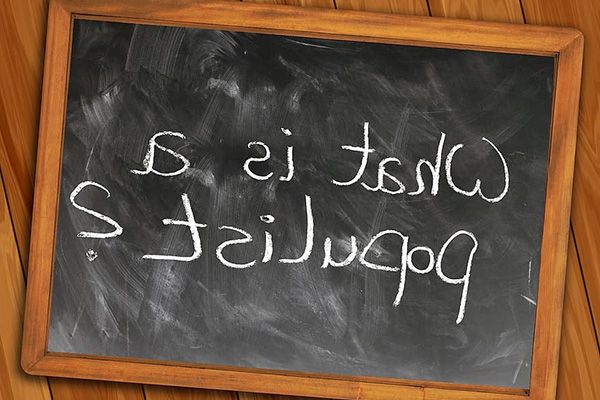 What is a
populist?